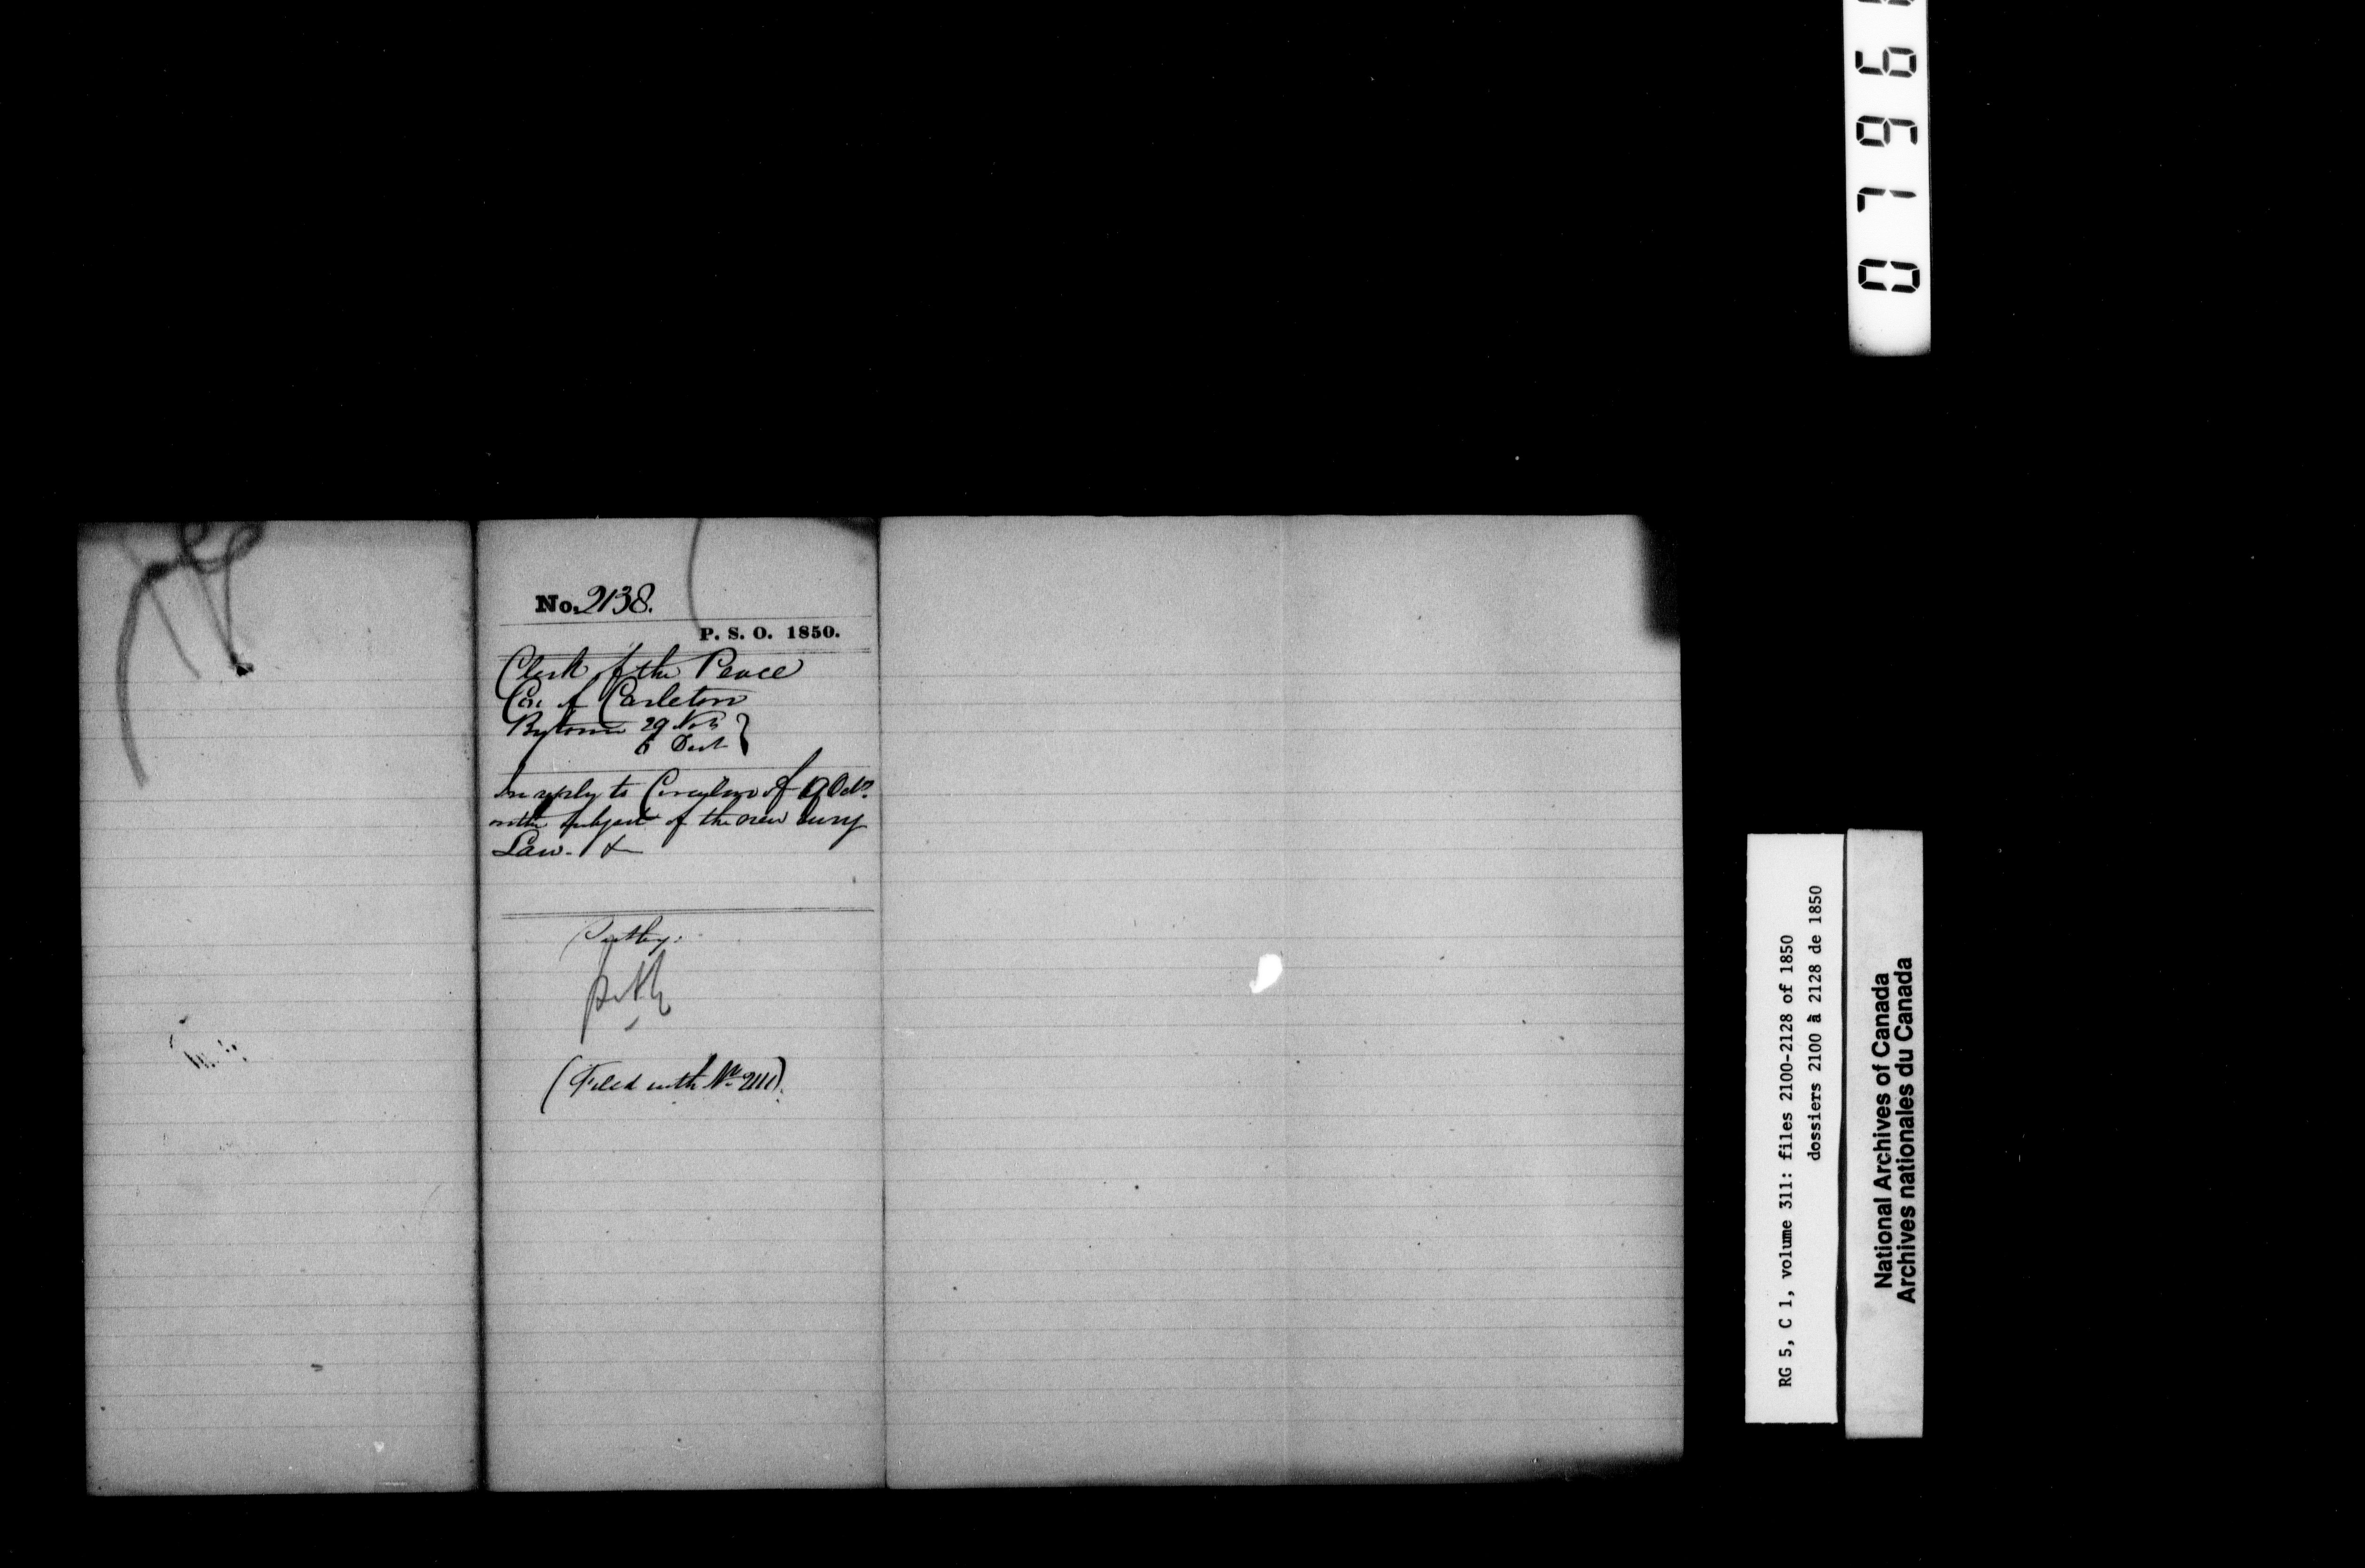 No. 2138.
P. S. O. 1850.
Clerk of the Peace
Co. of Carleton
Bytown 29 Nov
6 Dec
In reply to Circular of 19 Oct.
on the subject of the new Jury
Law. &
(Filed with No 2111).
RG 5, C 1, volume 311: files 2100-2128 of 1850
dossiers 2100 à 2128 de 1850
National Archives of Canada
Archives nationales du Canada
0796